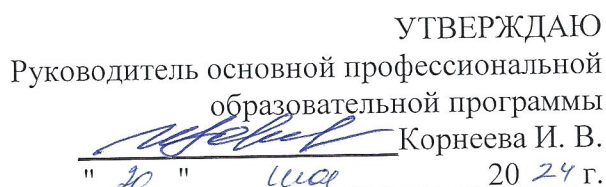 УТВЕРЖДАЮ
Руководитель основной профессиональной
образовательной программы
Корнеева И. В.
" 20 " мая 20 24 г.